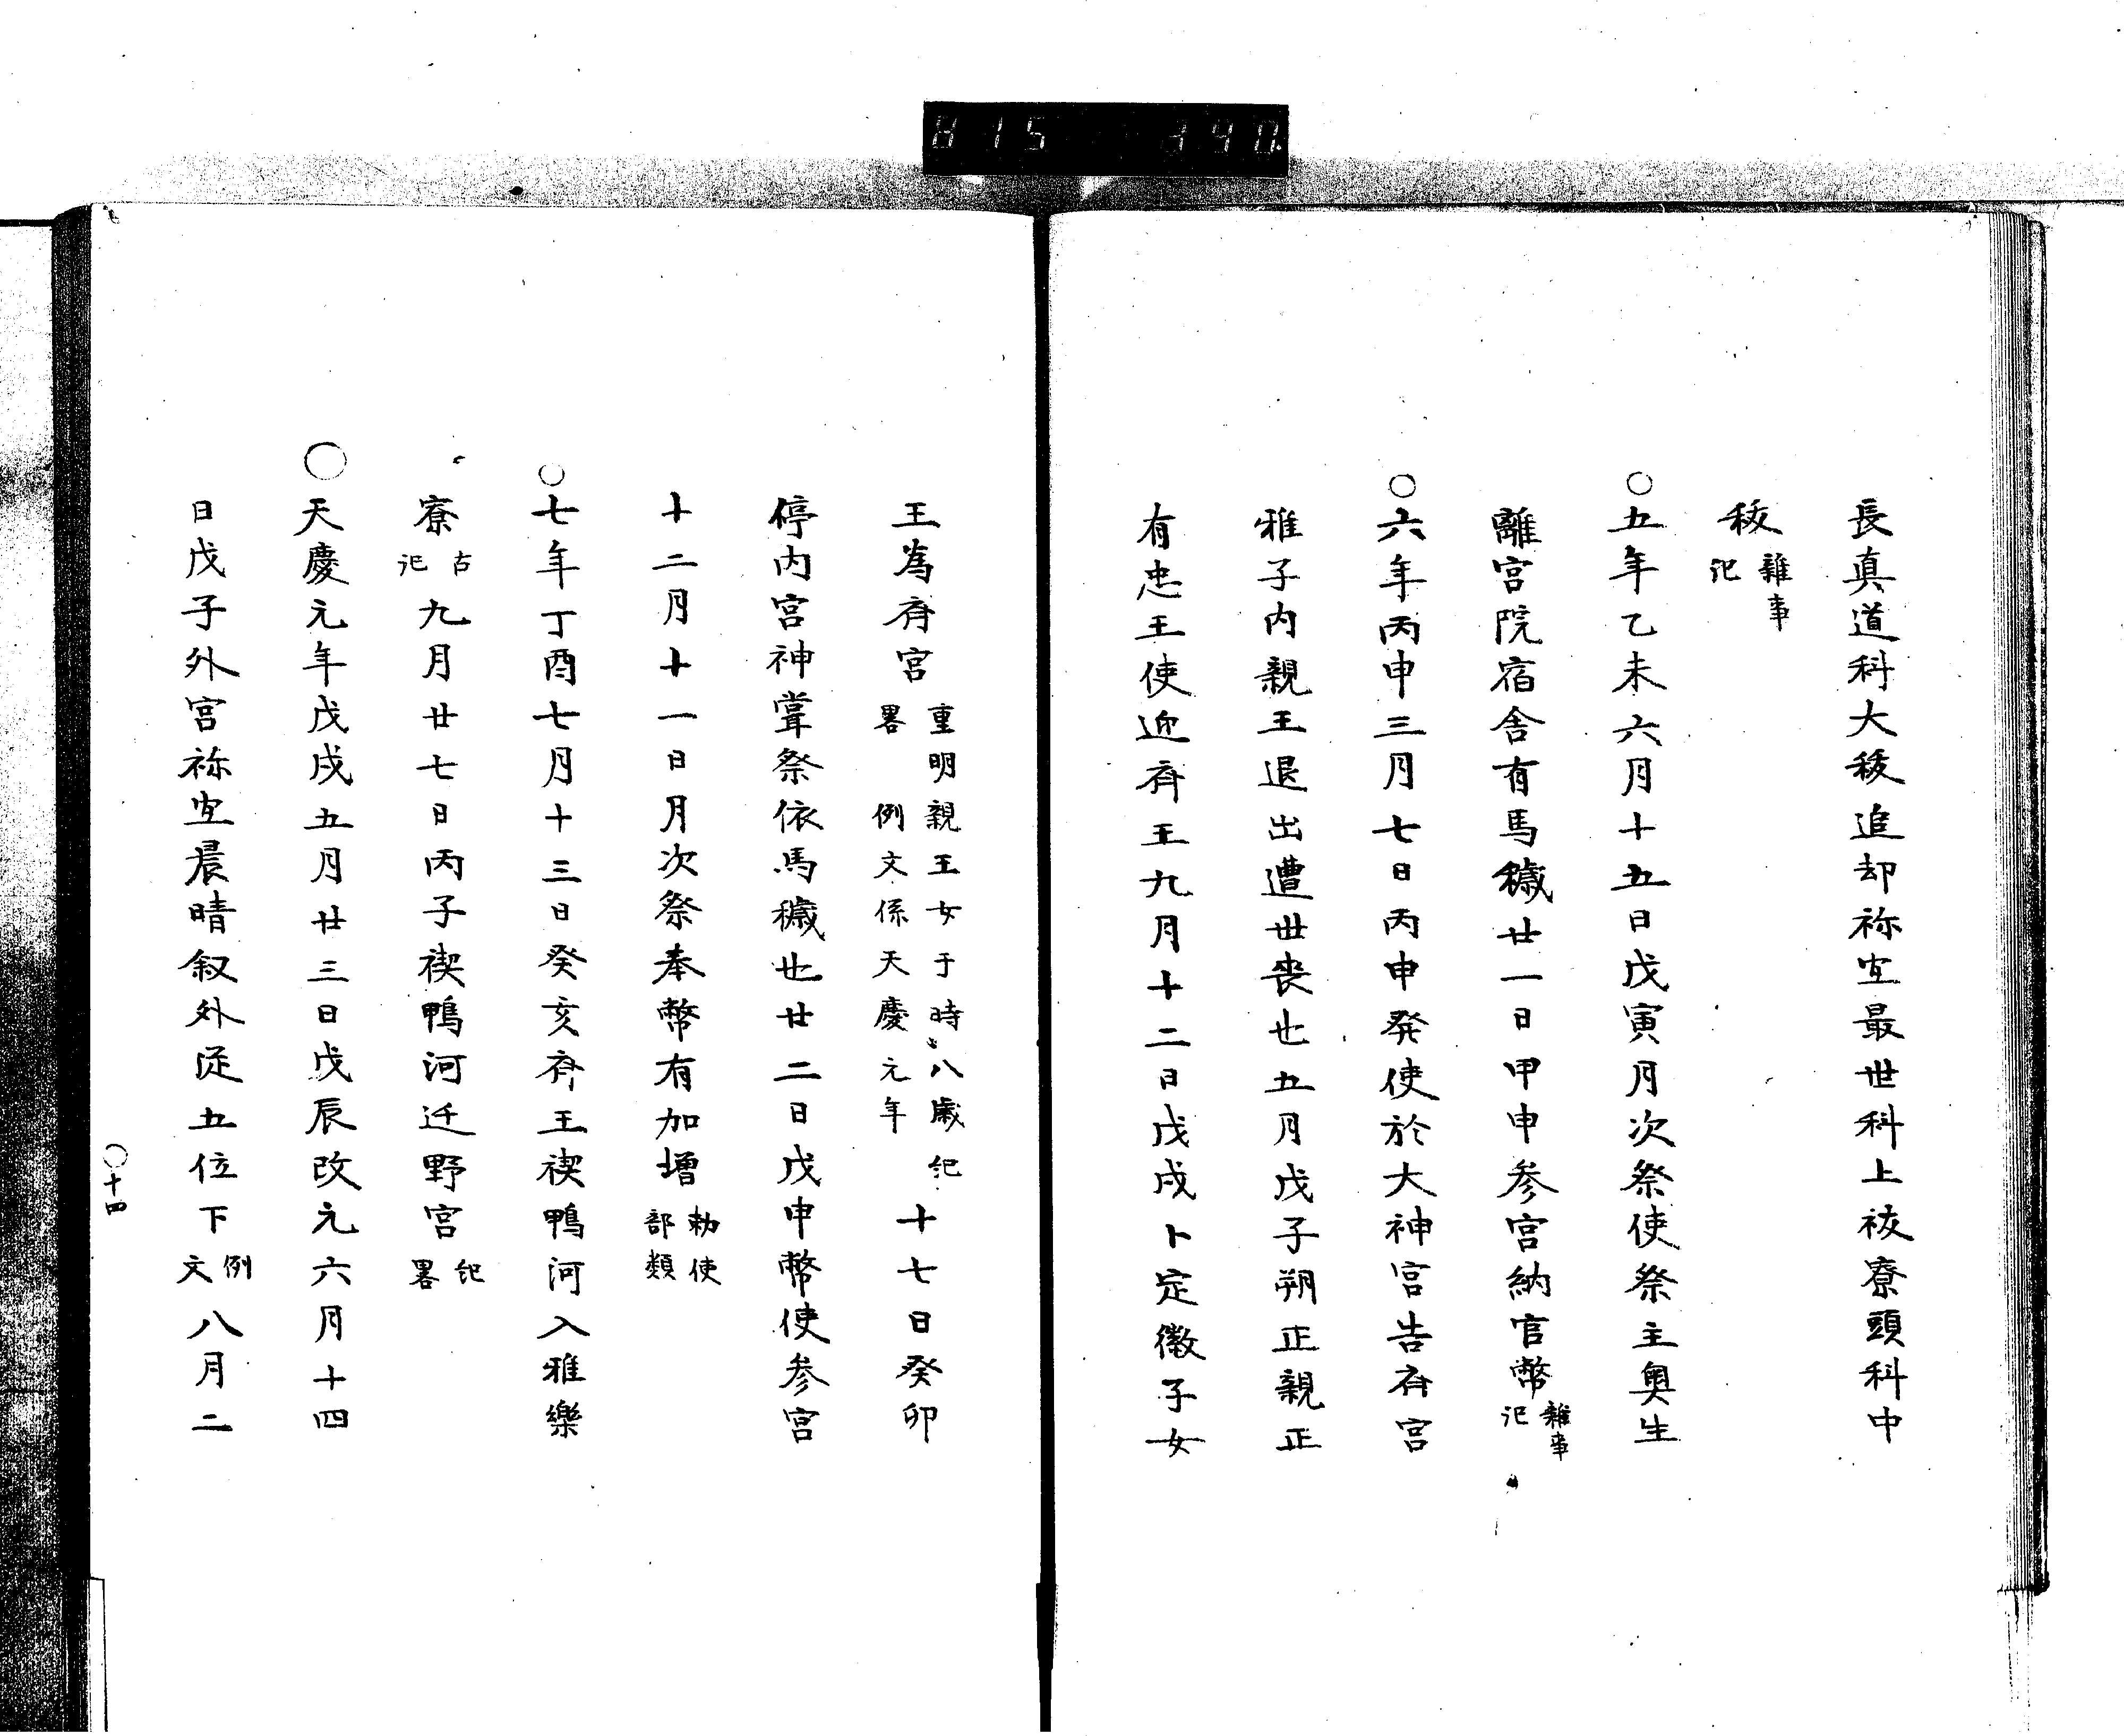 815 340
長真道科大秡追却祢宜最世科上祓寮頭科中
秡雑事記
○五年乙未六月十五日戊寅月次祭使祭主奥生
離宮院宿舎有馬穢廿一日甲申参宮納官幣雑事記
○六年丙申三月七日丙申発使於大神宮告斎宮
雅子内親王退出遭世喪也五月戊子朔正親正
有忠王使迎斎王九月十二日戊戌卜定徽子女
王為斎宮重明親王女于時八歳紀畧 例文係天慶元年十七日癸卯
停内宮神甞祭依馬穢也廿二日戊申幣使参宮
十二月十一日月次祭奉幣有加増勅使部類
○七年丁酉七月十三日癸亥斎王禊鴨河入雅樂
寮古記九月廿七日丙子禊鴨河迁野宮紀畧
○天慶元年戊戌五月廿三日戊辰改元六月十四
日戊子外宮祢宜晨晴叙外従五位下例文八月二
○十四